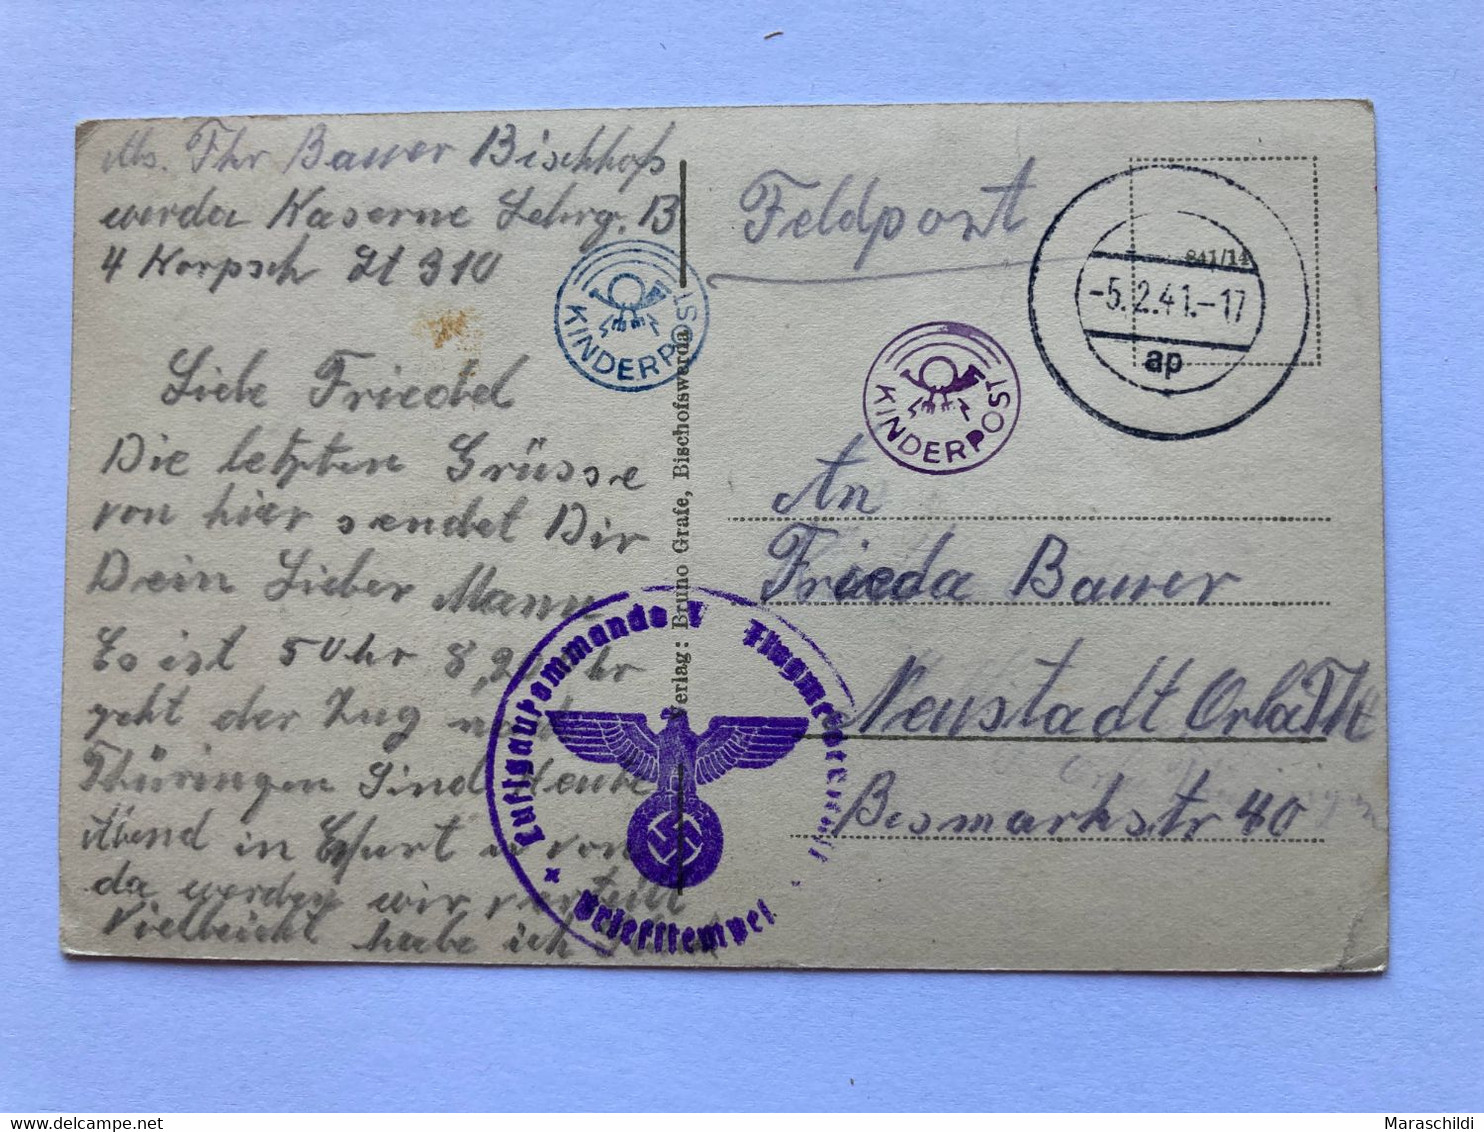 Abs. Fhr Bauer Bischhofs
werda Kaserne Lehrg. B
4 Korpsch Lt 310
Liebe Friedel
Die letzten Grüsse
von hier sendet Dir
Dein Lieber Mann
Es ist 5 Uhr 8,20 Uhr
geht der Zug nach
Thüringen Sind Heute
Abend in Erfurt u von
da werden wir verteilt
Vielleicht habe ich
KINDERPOST
Verlag: Bruno Grafe, Bischofswerda
Luftgaukommando
Briefstempel
Feldpost
841/14
-5.2.41.-17
ap
KINDERPOST
An
Frieda Bauer
Neustadt Orla Th
Bismarkstr 40
Maraschildi